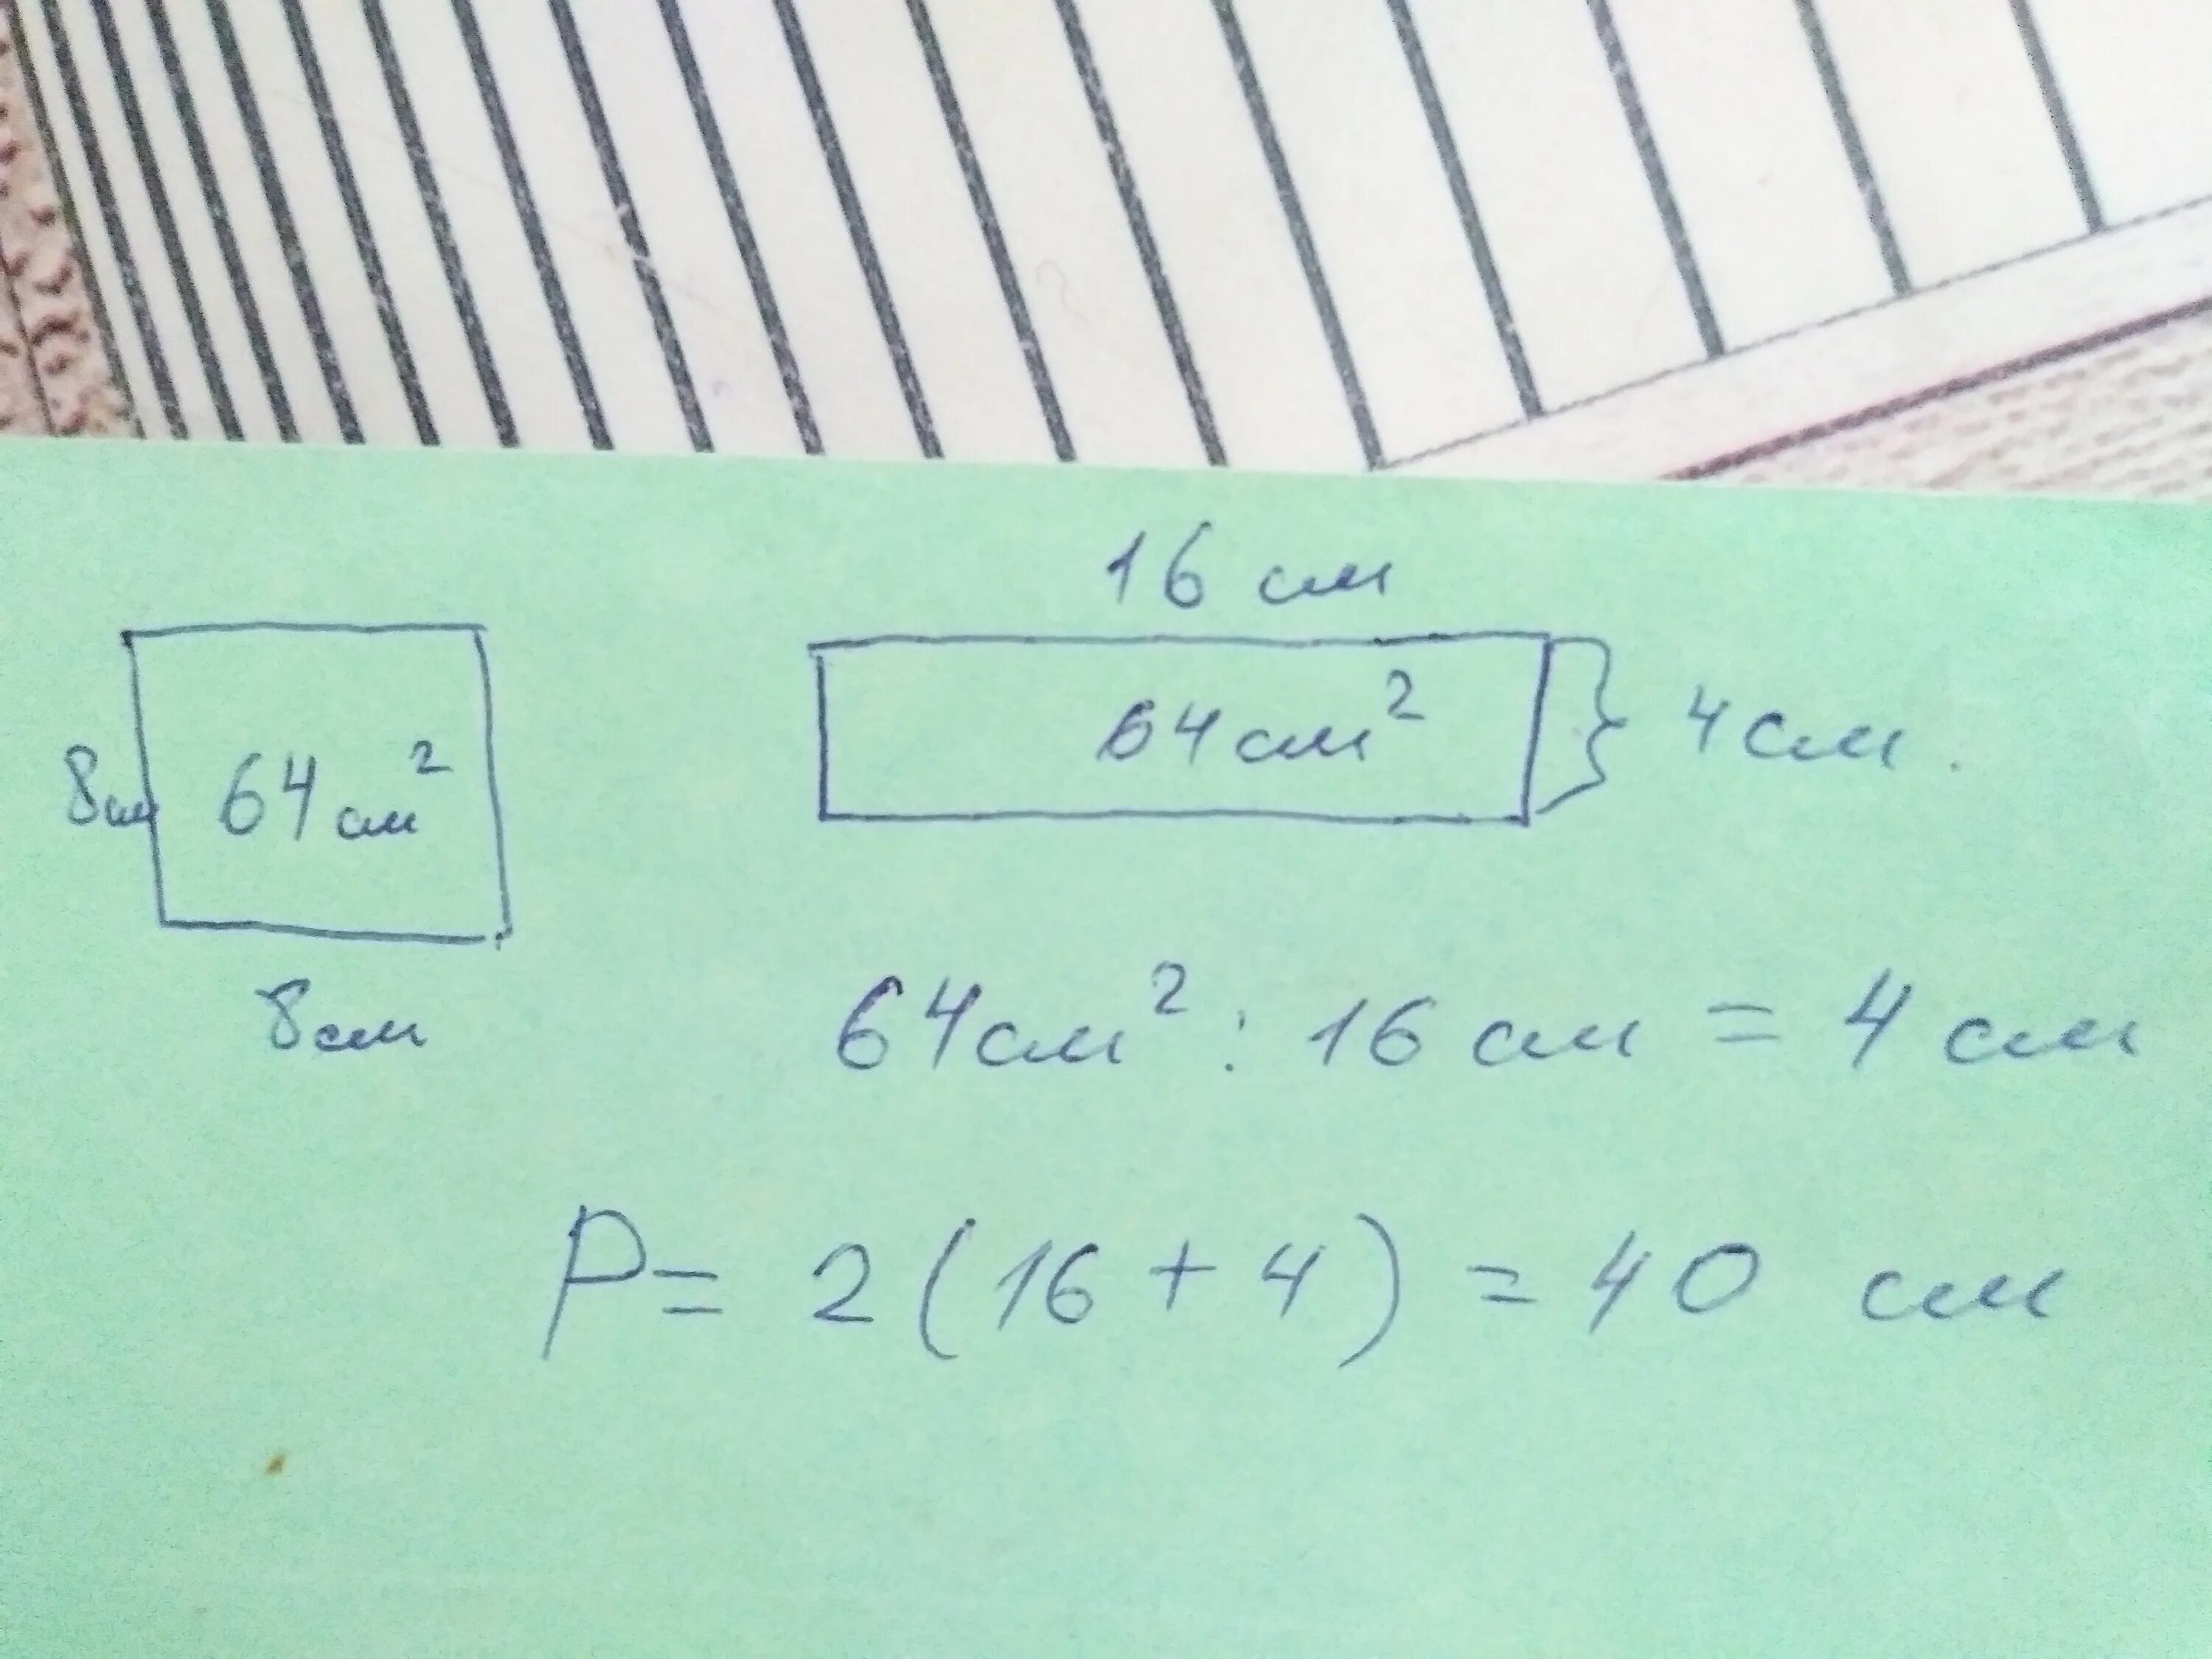 16 см
8см
64 см²
64 см²
4 см.
8см
64 см² : 16 см = 4 см
P = 2 (16 + 4) = 40 см